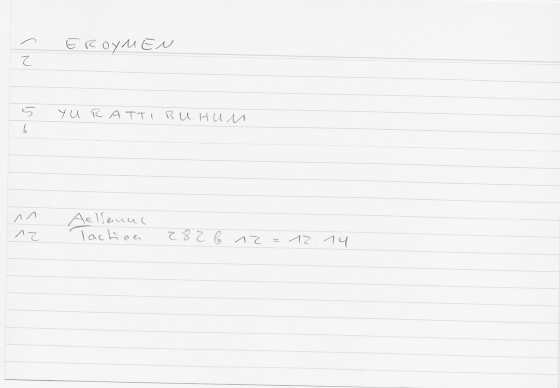 1 EROYMEN
2
5 YURATTIBUHUM
6
11 Aelianus
12 Tactica 282 6 12 = 12.14